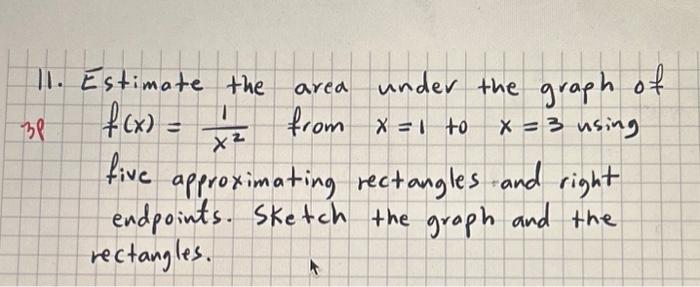 11. Estimate the area under the graph of
3p f(x) = 1/x² from x = 1 to x = 3 using
five approximating rectangles and right
endpoints. Sketch the graph and the
rectangles.